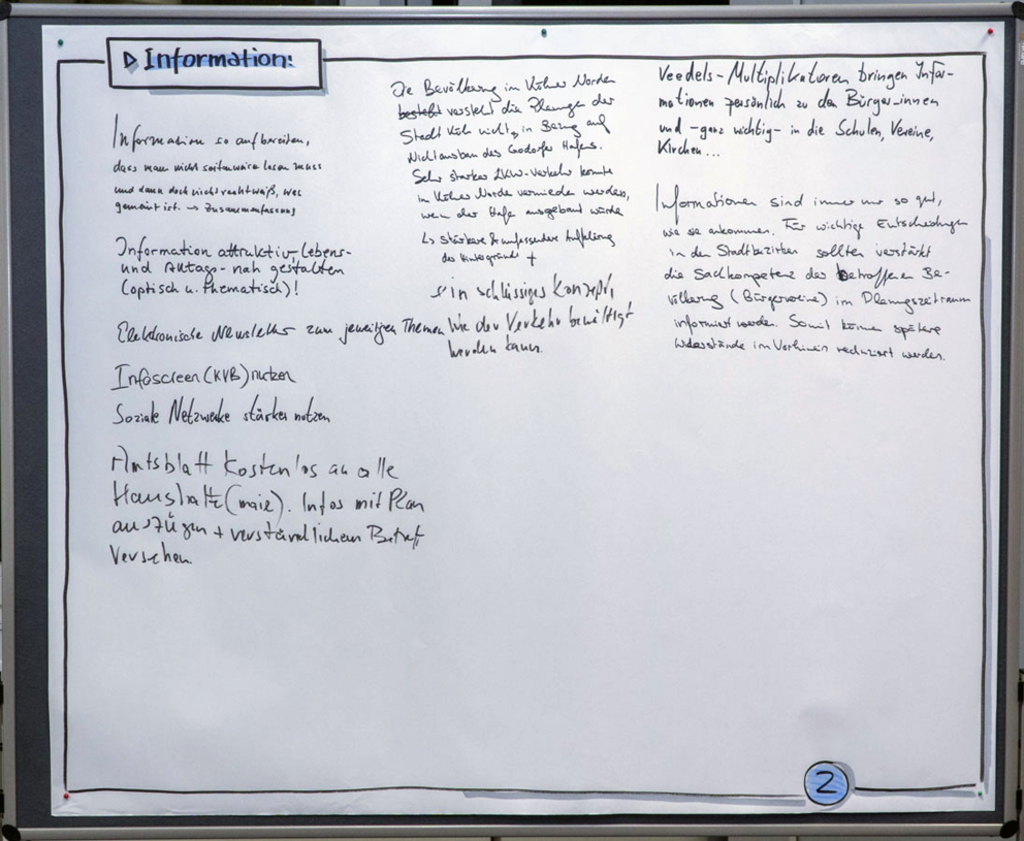 Information:
Information so aufbereiten,
dass man nicht seitenweise lesen muss
und dann doch nicht recht weiß, was
gemeint ist. → Zusammenfassung
Information attraktiv, Lebens-
und Alltags-nah gestalten
(optisch u. thematisch)!
Elektronische Newsletter zum jeweiligen Themen
Infoscreen (KVB) nutzen
Soziale Netzwerke stärker nutzen
Amtsblatt kostenlos an alle
Haushalte (maie). Infos mit Plan
auszügen + verständlichem Betreff
versehen.
Die Bevölkerung im Kölner Norden
besteht versteht die Planungen der
Stadt Köln nicht, in Bezug auf
Nichtausbau des Godorfer Hafens.
Sehr starker LKW-Verkehr könnte
im Kölner Norden vermieden werden,
wenn der Hafen ausgebaut würde
↳ Stärkere & umfassendere Aufklärung
der Hintergründe +
ein schlüssiges Konzept,
wie der Verkehr bewältigt
werden kann.
Veedels-Multiplikatoren bringen Infor-
mationen persönlich zu den Bürger_innen
und -ganz wichtig- in die Schulen, Vereine,
Kirchen...
Informationen sind immer nur so gut,
wie sie ankommen. Für wichtige Entscheidungen
in den Stadtbezirken sollten verstärkt
die Sachkompetenz der betroffenen Be-
völkerung (Bürgervereine) im Planungszeitraum
informiert werden. Somit können spätere
Widerstände im Vorhinein reduziert werden.
2